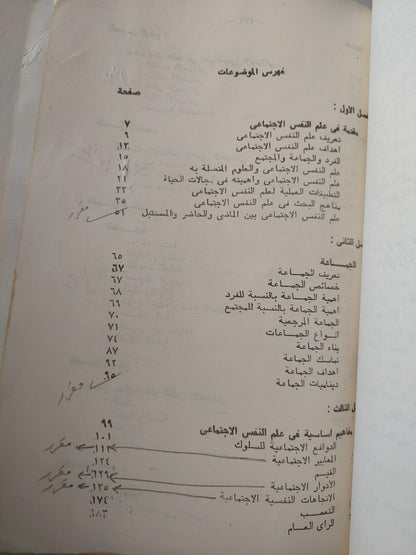 فهرس الموضوعات
صفحة
صل الأول :
مقدمة فى علم النفس الاجتماعى ٧
تعريف علم النفس الاجتماعى ٩
اهداف علم النفس الاجتماعى ١٣
الفرد والجماعة والمجتمع ١٥
علم النفس الاجتماعى والعلوم المتصلة به ١٨
علم النفس الاجتماعى واهميته فى مجالات الحياة ٢١
التطبيقات العملية لعلم النفس الاجتماعى ٣٣
مناهج البحث فى علم النفس الاجتماعى ٣٥
علم النفس الاجتماعى بين الماضى والحاضر والمستقبل ٥١ مقرر
ل الثانى :
الجماعة ٦٥
تعريف الجماعة ٦٧
خصائص الجماعة ٦٧
اهمية الجماعة بالنسبة للفرد ٦٨
اهمية الجماعة بالنسبة للمجتمع ٦٩
الجماعة المرجعية ٧٠
انواع الجماعات ٧١
بناء الجماعة ٧٤
تماسك الجماعة ٨٧
اهداف الجماعة ٩٢
ديناميات الجماعة ٩٥ مقرر
ل الثالث :
مفاهيم اساسية فى علم النفس الاجتماعى ٩٩
الدوافع الاجتماعية للسلوك ١٠١
المعايير الاجتماعية ١١٣ مقرر
القيم ١٢٤
الأدوار الاجتماعية ١٢٩ مقرر
الاتجاهات النفسية الاجتماعية ١٣٥ مقرر
التعصب ١٧٤
الراى العام ١٨٣